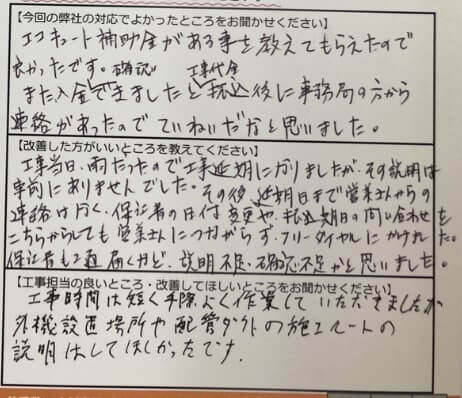 【今回の弊社の対応でよかったところをお聞かせください】
エコキュート補助金がある事を教えてもらえたので
良かったです。確認 工事代金
また入金できましたと振込後に事務局の方から
連絡があったのでていねいだなと思いました。
【改善した方がいいところを教えてください】
工事当日、雨だったので工事延期になりましたが、その説明は
事前にありませんでした。その後延期日まで営業さんからの
連絡は行く、保証書の日付変更や、振込期日の問い合わせを
こちらからしても営業さんにつながらず、フリーダイヤルにかけました。
保証書も2通届くなど、説明不足・確認不足かと思いました。
【工事担当の良いところ・改善してほしいところをお聞かせください】
工事時間は短く手際よく作業していただきましたが
外機設置場所や配管ダクトの施工ルートの
説明はしてほしかったです。